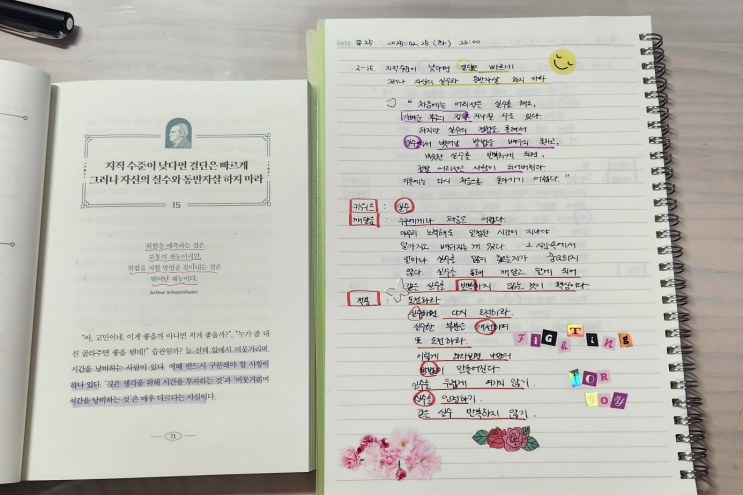 지적 수준이 낮다면 결단은 빠르게
그러나 자신의 실수와 동반자살 하지 마라
15
위험을 예측하는 것은
보통의 재능이지만,
위험을 피할 방법을 찾아내는 것은
뛰어난 재능이다.
Arthur Schopenhauer
"아, 고민이네. 이게 좋을까 아니면 저게 좋을까?", "누가 좀 대
신 골라주면 좋을 텐데!" 습관일까? 늘 선택 앞에서 머뭇거리며,
시간을 낭비하는 사람이 있다. 이때 반드시 구분해야 할 사항이
하나 있다. '깊은 생각을 위해 시간을 투자하는 것'과 '머뭇거리며
시간을 낭비하는 것'은 매우 다르다는 사실이다.
71
DATE #25 2025.02.25 (화) 23:00
2-15. 지적수준이 낮다면 결단은 빠르게
그러나 자신의 실수와 동반자살 하지 마라
" 처음에는 어리석은 실수를 해도,
가벼운 분수의 지나칠 수도 있다.
하지만 실수의 경험을 통해서
실수에서 벗어날 방법을 배우지 못하고,
비슷한 실수를 반복하게 되면,
정말 어리석은 사람이 되어버린다.
이후에는 다시 처음으로 돌아가기 어렵다. "
키워드 : 실수
깨달음 : 누구에게나 처음은 어렵다.
아무리 노력해도 일정한 시간이 지나야
알아지고 배워지는 게 있다. 그 시간속에서
얼마나 실수를 많이 했는지가 중요하지
않다. 실수를 통해 깨닫고 알게 되어
같은 실수를 반복하지 않는 것이 핵심이다.
적용 : 도전하라
실수하면 다시 도전하라.
실수한 부분은 개선하며
또 도전하라.
이렇게 하다보면 나만의
방법이 만들어진다.
실수를 두렵게 여기지 않기.
실수를 인정하기.
같은 실수 반복하지 않기.
FIGHTING
FOR
YOU